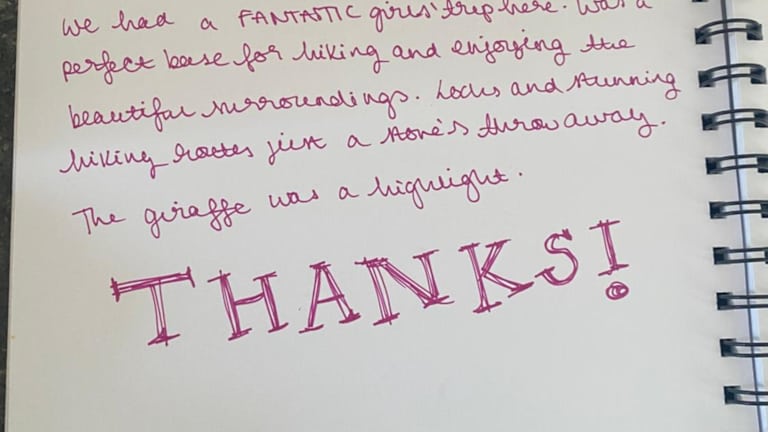 we had a FANTASTIC girls' trip here. Was a
perfect base for hiking and enjoying the
beautiful surroundings. Lochs and stunning
hiking routes just a stone's throw away.
The giraffe was a highlight.
THANKS!